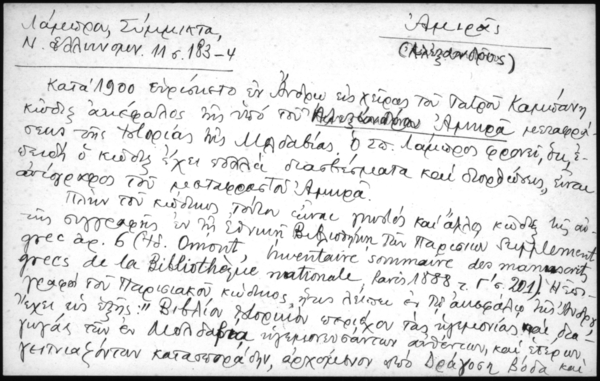 Λάμπρος, Σύμμικτα,
Ν. Ελληνομν. 11 σ. 183-4
Ἀμιρᾶς
(Ἀλέξανδρος)
Κατὰ 1900 εὑρίσκετο ἐν Ἄνδρῳ εἰς χεῖρας τοῦ ἰατροῦ Καμπάνη
κῶδιξ ἀκέφαλος τῆς ὑπὸ τοῦ Ἀλεξάνδρου Ἀμιρᾶ μεταφρά-
σεως τῆς Ἱστορίας τῆς Μολδαβίας. Ὁ Σπ. Λάμπρος φρονεῖ, ὅτι, ἐ-
πειδὴ ὁ κῶδιξ ἔχει πολλὰ διασβέσματα καὶ διορθώσεις, εἶναι
αὐτόγραφος τοῦ μεταφραστοῦ Ἀμιρᾶ.
Πλὴν τοῦ κώδικος τούτου εἶναι γνωστὸς καὶ ἄλλος κῶδιξ τῆς αὐ-
τῆς συγγραφῆς ἐν τῇ Ἐθνικῇ Βιβλιοθήκῃ τῶν Παρισίων Supplément
grec ἀρ. 6 (Η. Omont, Inventaire sommaire des manuscrits
grecs de la Bibliothèque nationale, Paris 1888 τ. Γ΄ σ. 201). Ἡ ἐπι-
γραφὴ τοῦ Παρισιακοῦ κώδικος, ἥτις λείπει ἐν τῷ ἀκεφάλῳ τῆς Ἄνδρου,
ἔχει ὡς ἑξῆς: "Βιβλίον ἱστορικὸν περιέχον τὰς ἡγεμονίας καὶ δια-
γωγὰς τῶν ἐν Μολδαβίᾳ ἡγεμονευσάντων αὐθέντων, καὶ ἑτέρων,
γειτνιαζόντων κατασποράδην, ἀρχόμενον ἀπὸ Δράγοση βόδα καὶ